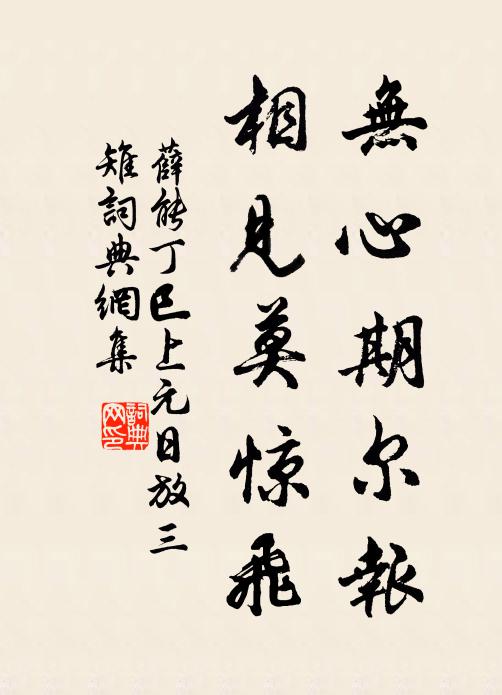 無心期尔報
相見莫惊飛
薛能丁巳上元日放三
雉詞典網集
詞典
网印